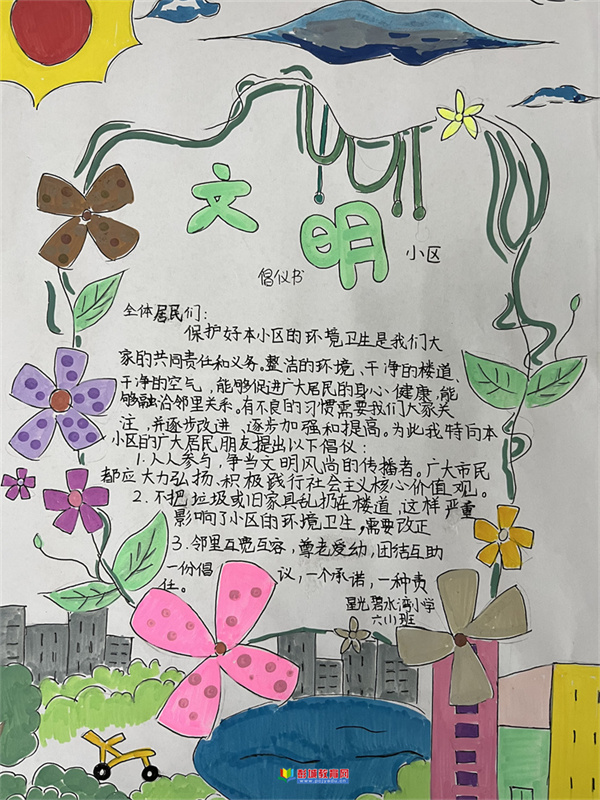 文明
小区
倡仪书
全体居民们：
保护好本小区的环境卫生是我们大
家的共同责任和义务。整洁的环境、干净的楼道、
干净的空气，能够促进广大居民的身心、健康，能
够融洽邻里关系。有不良的习惯需要我们大家关
注，并逐步改进，逐步加强和提高。为此我特向本
小区的广大居民朋友提出以下倡仪：
1.人人参与，争当文明风尚的传播者。广大市民
都应大力弘扬、积极践行社会主义核心价值观。
2.不把垃圾或旧家具乱扔在楼道，这样严重
影响了小区的环境卫生，需要改正
3.邻里互宽互容，尊老爱幼，团结互助
一份倡议，一个承诺，一种责
任。
星光碧水湾小学
六(1)班
彭州教育网